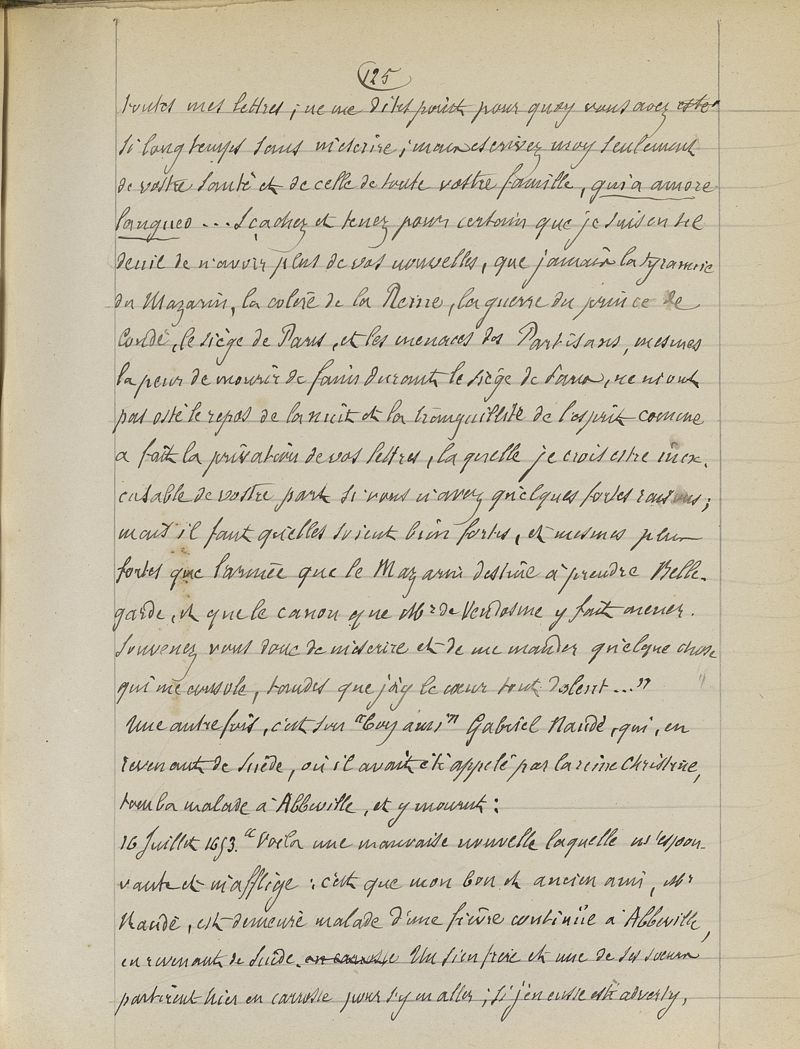 125
toutes mes lettres ; ne me dites point pour quoy vous avez esté
si long temps sans m'escrire ; mais escrivez moy seulement
de vostre santé et de celle de toute vostre famille, quia amore
langueo ... Sçachez et tenez pour certain que je suis en tel
deuil de n'avoir plus de vos nouvelles, que jamais la tyrannie
du Mazarin, la colere de la Reine, la guerre du prince de
Condé, le siège de Paris, et les menaces des Partisans, mesmes
la peur de mourir de faim durant le siège de Paris, ne m'ont
pas osté le repos de la nuit et la tranquillité de l'esprit comme
a fait la privation de vos lettres, laquelle je crois estre inex-
cusable de vostre part si vous n'avez quelques fortes raisons ;
mais il faut qu'elles soient bien fortes, et mesmes plus
fortes que l'armée que le Mazarin destine à prendre Belle-
garde, et que le canon que Mr de Vendosme y fait mener.
Souvenez vous donc de m'escrire et de me mander quelque chose
qui me console, tandis que j'ay le cœur tout dolent ... "
Une autre fois, c'est son "bon ami" Gabriel Naudé, qui, en
revenant de Suède, où il avait été appelé par la reine Christine,
tomba malade à Abbeville, et y mourut :
16 Juillet 1653. "Voila une mauvaise nouvelle laquelle m'espou-
vante et m'afflige : c'est que mon bon et ancien ami, Mr
Naudé, est demeuré malade d'une fièvre continüe à Abbeville,
en revenant de Suède. en carrosse Un sien frere et une de ses sœurs
partirent hier en carrosse pour s'y en aller ; si j'en eusse esté adverty,